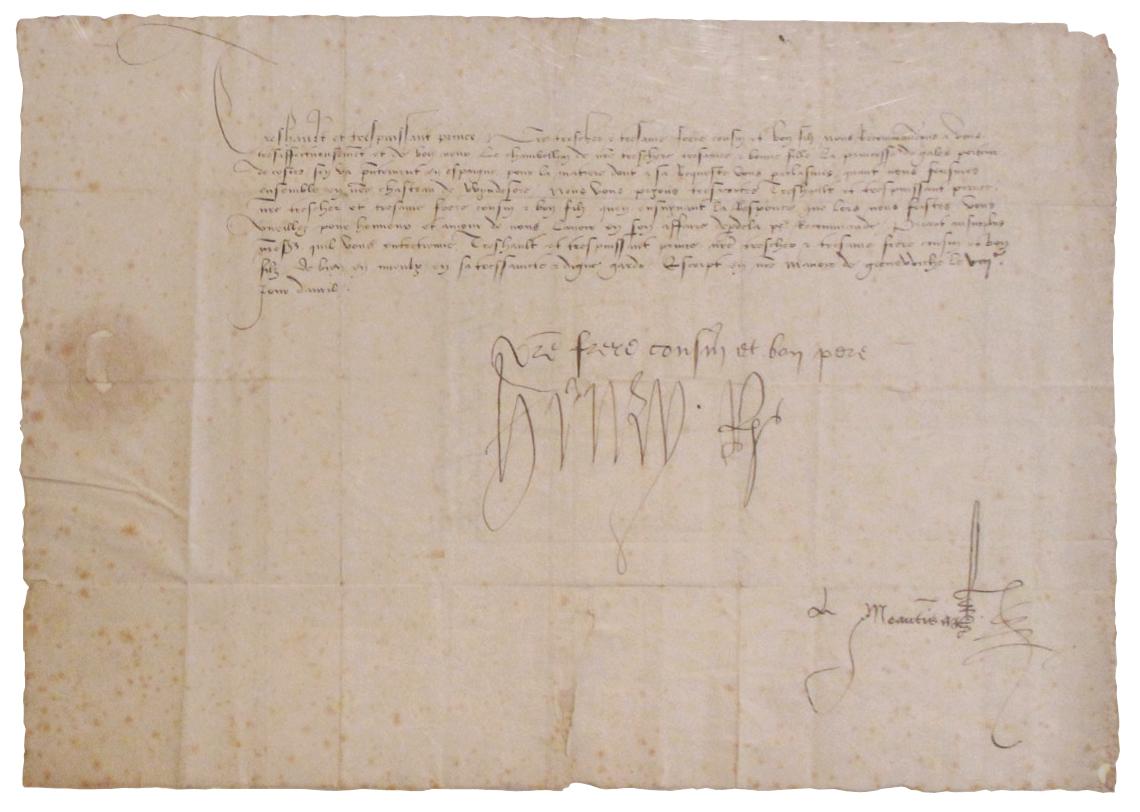 Treshault et trespuissant prince, Nre trescher & tresame frere cousin et bon filz nous Recommandons a vous
tresaffectueusement et de bon cueur Le chambellan de nre treschere tresamee & bonne fille La princesse de gales porteur
de cestes sen va pntement en espaigne pour la matiere dont a sa Requeste vous parlasmes, quant nous feusmes
ensemble en nre chasteau de Wyndesore. Nous vous prions trescertes Treshault et trespuissant prince,
nre trescher et tresame frere cousin & bon filz quen ensuyuant la Response que lors nous feistes Vous
vueillez pour honneur et amour de nous Lauoir en son affaire pour Recommande Priant
qui vous entretienne Treshault et trespuissant prince nre trescher & tresame frere cousin et bon
filz de bien en mieulx en sa tressaincte & digne garde Escript en nre manoir de grenewiche le viij
Jour dauril.
Vre frere cousin et bon pere
Henry R
Meautis